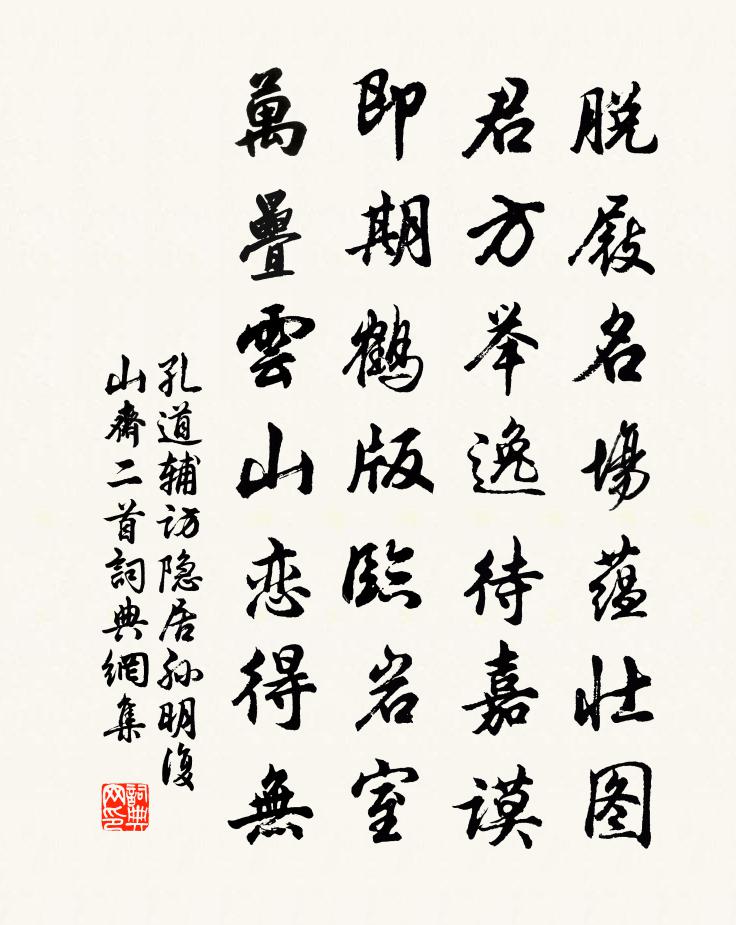 脱屐名場蕴壮图
君方举逸待嘉谟
即期鹤版臨岩室
萬疊雲山恋得無
孔道辅访隐居孙明復
山齋二首詞典網集
詞典网印